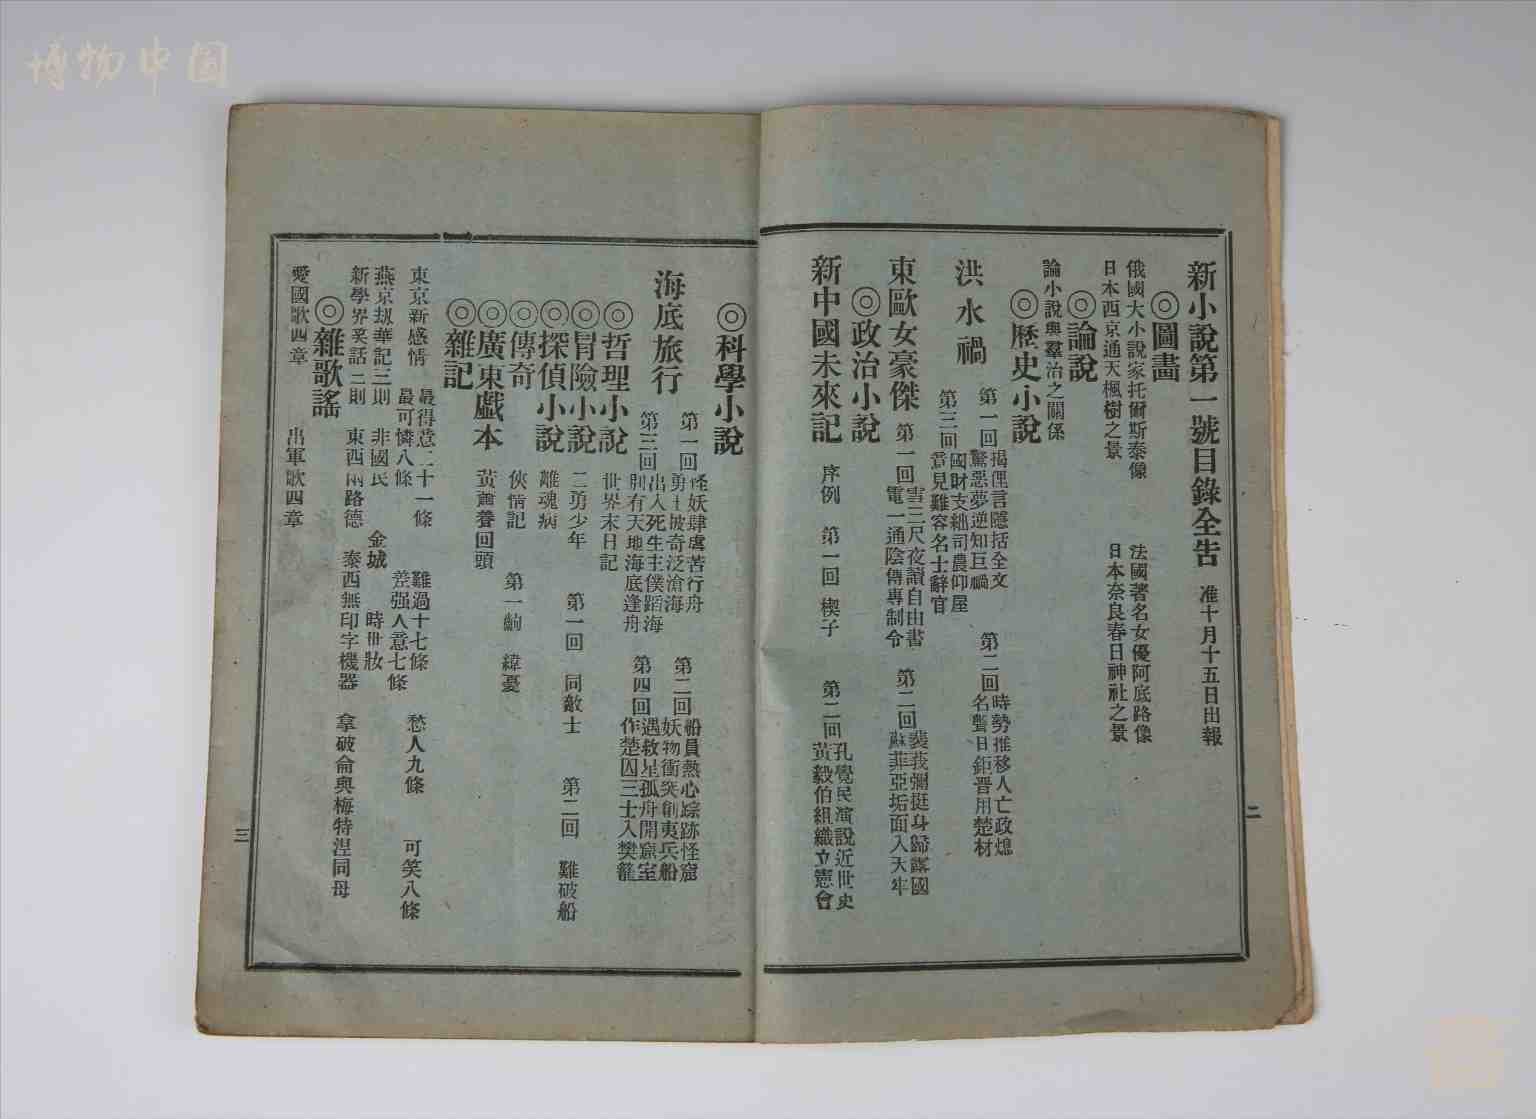 博物中国
新小說第一號目錄全告 准十月十五日出報
◎圖畫
俄國大小說家托爾斯泰像 法國著名女優阿底路像
日本西京通天楓樹之景 日本奈良春日神社之景
◎論說
論小說與羣治之關係
◎歷史小說
洪水禍 第一回 揭俚言隱括全文 驚惡夢逆知巨禍 第二回 時勢推移人亡政熄 名聲日鉅晋用楚材
第三回 國財支絀司農仰屋 意見難容名士辭官
東歐女豪傑 第一回 雪三尺夜讀自由書 電一通陰傳專制令 第二回 裴莪彌挺身歸露國 蘇菲亞垢面入天牢
◎政治小說
新中國未來記 序例 第一回 楔子 第二回 孔覺民演說近世史 黃毅伯組織立憲會
二
◎科學小說
海底旅行 第一回 怪妖肆虐苦行舟 勇士披奇泛滄海 第二回 船員熱心踪跡怪窟 妖物衝突創夷兵船
第三回 出入死生主僕蹈海 別有天地海底逢舟 第四回 遇救星孤舟開窻室 作楚囚三士入樊籠
◎哲理小說 世界末日記
◎冒險小說 二勇少年 第一回 同敵士 第二回 難破船
◎探偵小說 離魂病
◎傳奇 俠情記 第一齣 緯憂
◎廣東戲本 黃蕭養回頭
◎雜記
東京新感情 最得意二十一條 難過十七條 愁人九條 可笑八條
最可憐八條 差强人意七條
燕京刼華記三則 非國民 金城 時世妝
新學界笑話二則 東西兩路德 泰西無印字機器 拿破侖與梅特涅同母
◎雜歌謠
愛國歌四章 出軍歌四章
三